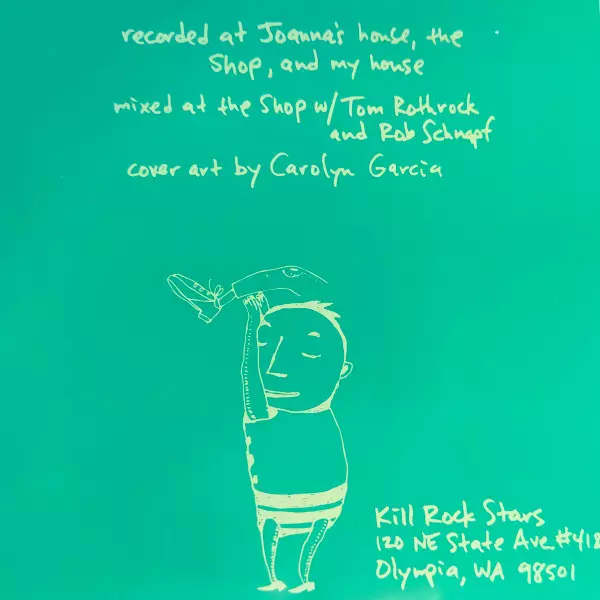 recorded at Joanna's house, the
Shop, and my house
mixed at the Shop w/ Tom Rothrock
and Rob Schnapf
cover art by Carolyn Garcia
Kill Rock Stars
120 NE State Ave #418
Olympia, WA 98501